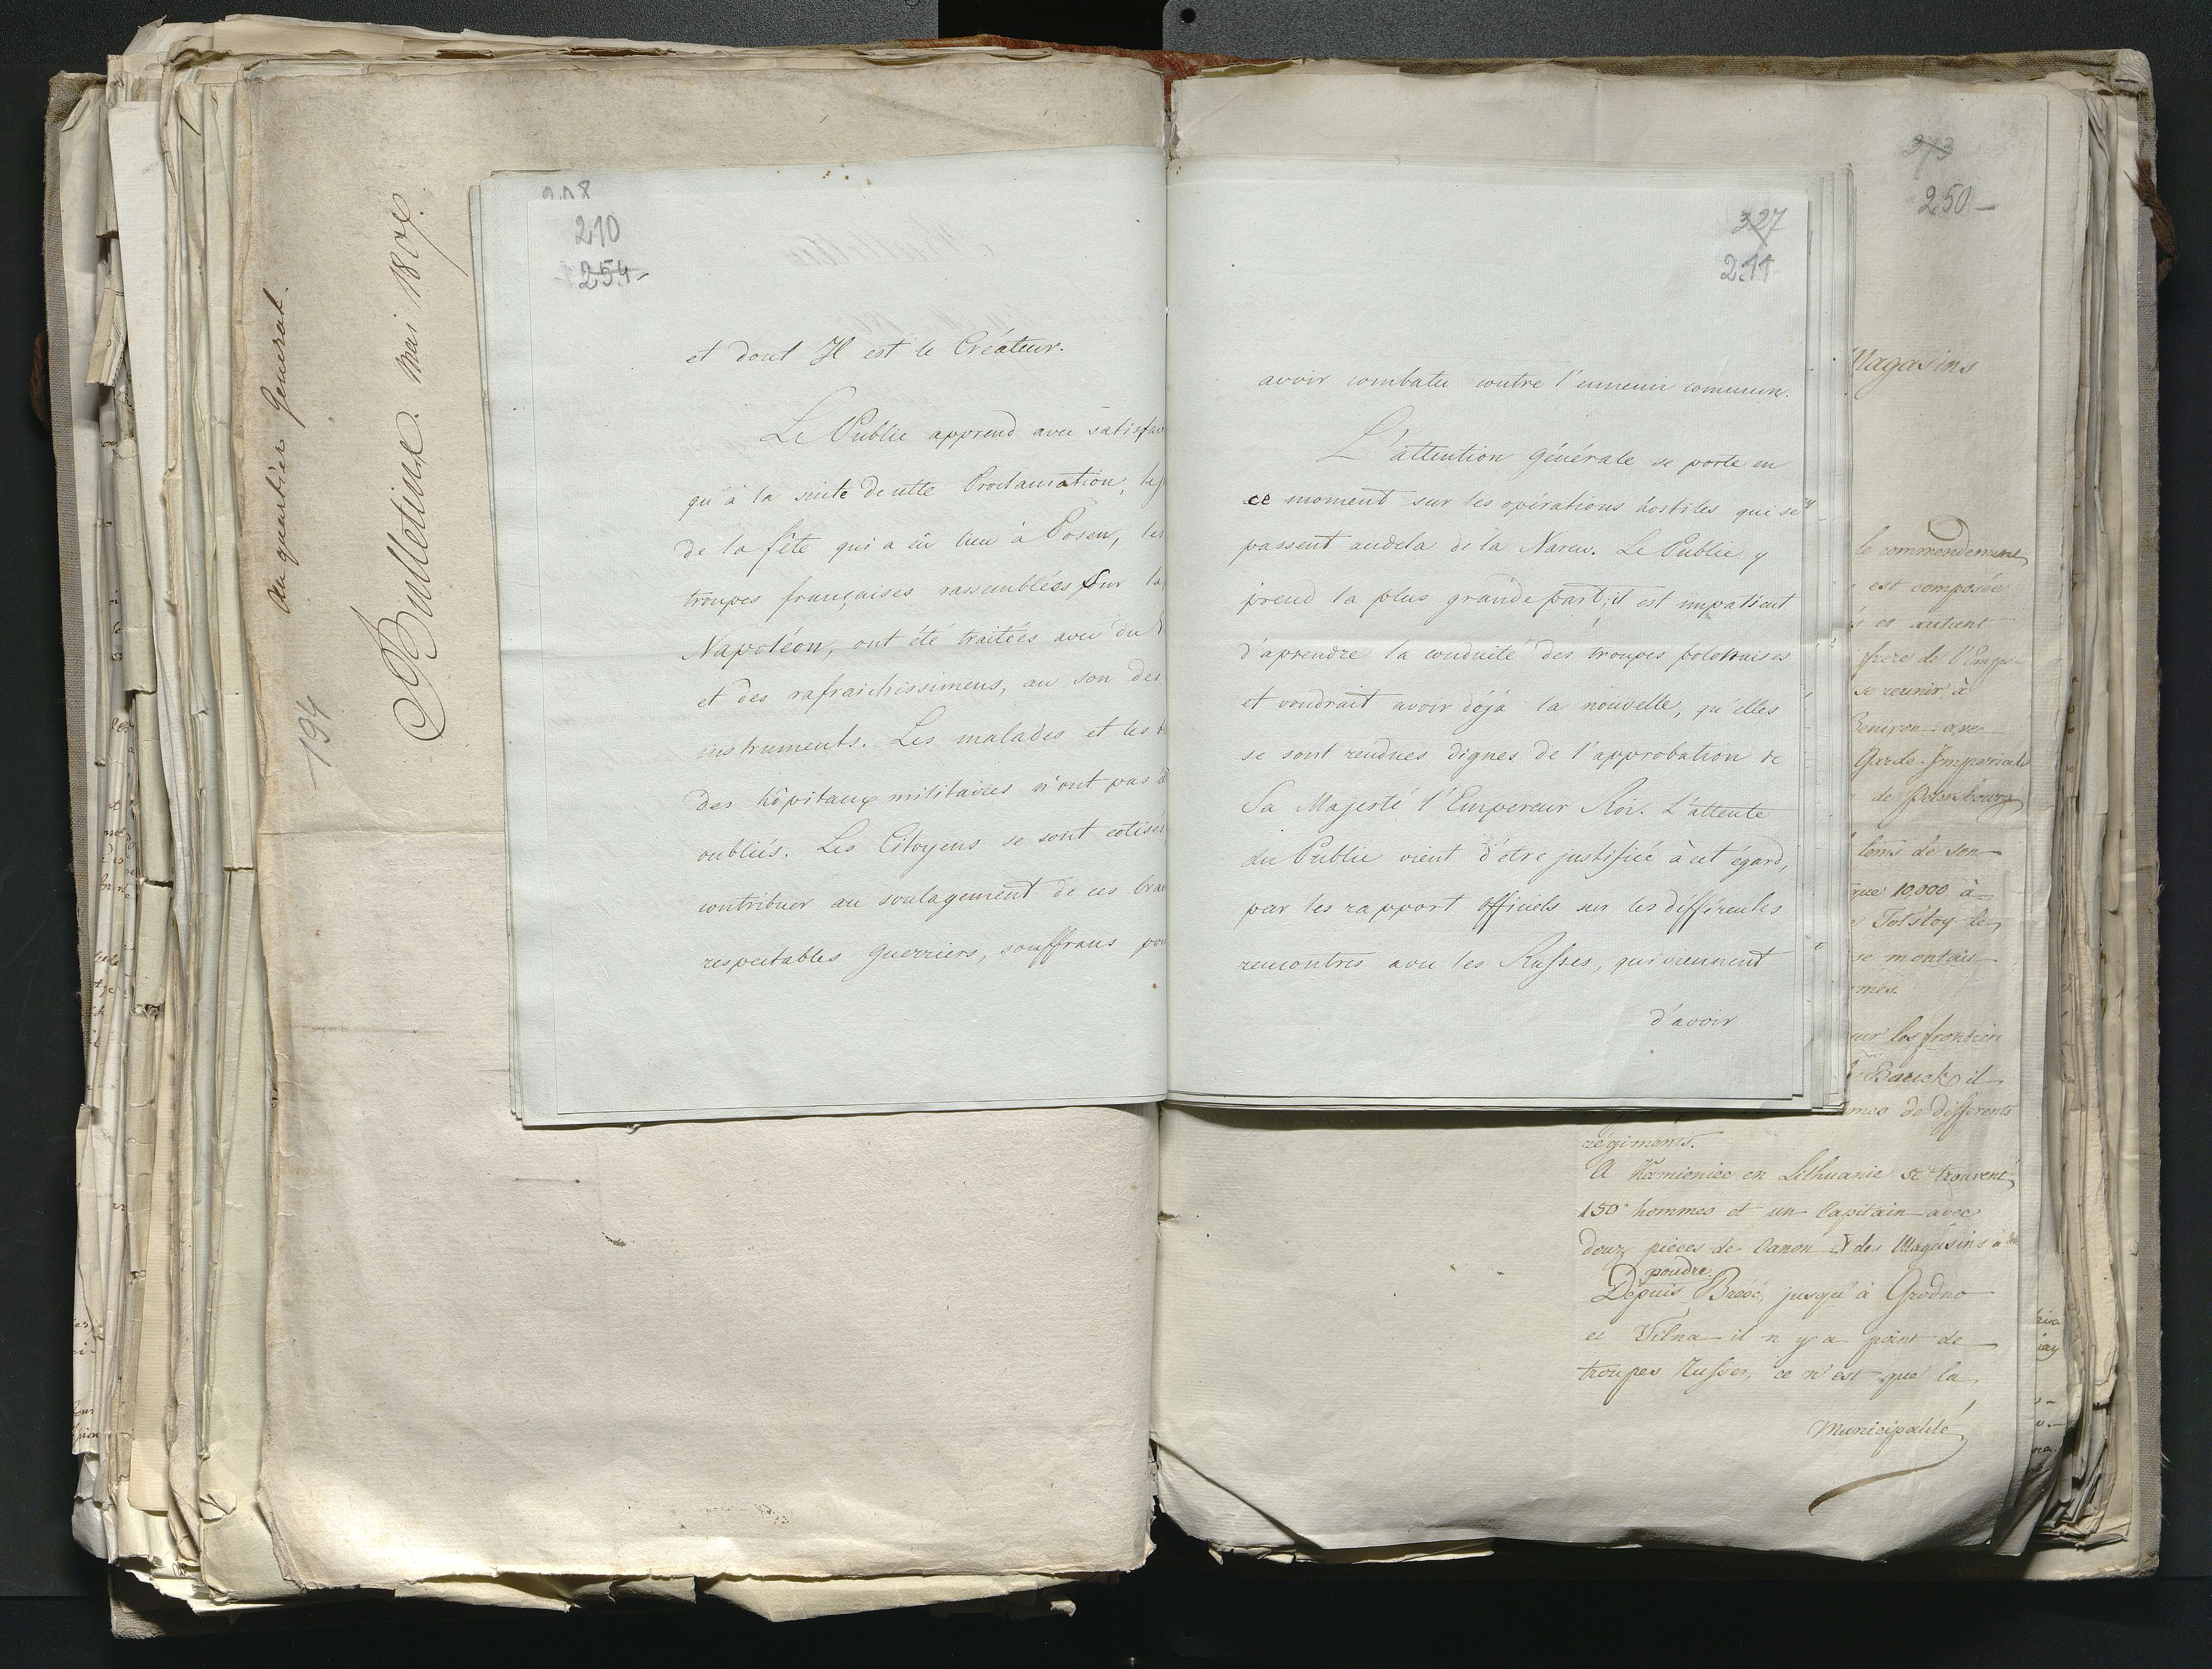 Au quartier General.
Bulletins. mai 1807.
194
208
210
254
et dont Il est le Créateur.
Le Public apprend avec satisfac
qu'à la suite de cette Proclamation,
de la fête qui a eû lieu à Posen, les
troupes françaises rassemblées sur la
Napoléon, ont été traitées avec du
et des rafraichissimens, au son des
instruments. Les malades et les
des hôpitaux militaires n'ont pas
oubliés. Les Citoyens se sont cotisés
contribuer au soulagement de ces bra
respectables guerriers, souffrans pou
327
211
avoir combatu contre l'ennemi commun.
L'attention générale se porte en
ce moment sur les opérations hostiles qui se
passent audela de la Narew. Le Public y
prend la plus grande part; il est impatient
d'aprendre la conduite des troupes polonaises
et voudrait avoir déjà la nouvelle, qu'elles
se sont rendues dignes de l'approbation de
Sa Majesté l'Empereur Roi. L'attente
du Public vient d'etre justifiée à cet égard,
par les rapport officiels sur les différentes
rencontres avec les Russes, qui viennent
d'avoir
273
250
Magasins
le commendement
est composée
et autant
frere de l'Empe
se reunir à
Benixon avec
Garde Imperiale
de Petersbourg
tems de son
que 10,000 à
Tolstoy le
se montais
mes.
sur les frontieri
il
mes de differents
régiments.
A Kamieniec en Lithuanie se trouvent
150 hommes et un Capitain avec
douz pieces de Canon et des Magasins à
poudre.
Depuis Brésc, jusqu'à Grodno
et Vilna il n'y a point de
troupes Russes, ce n'est que la
Municipalité